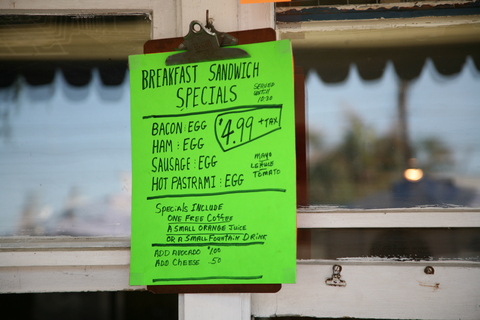 BREAKFAST SANDWICH
SPECIALS
SERVED
UNTIL
10:30
BACON : EGG
HAM : EGG
SAUSAGE : EGG
HOT PASTRAMI : EGG
$4.99 +TAX
MAYO
LETTUCE
TOMATO
SPECIALS INCLUDE
ONE FREE COFFEE
A SMALL ORANGE JUICE
OR A SMALL FOUNTAIN DRINK
ADD AVOCADO $1.00
ADD CHEESE .50